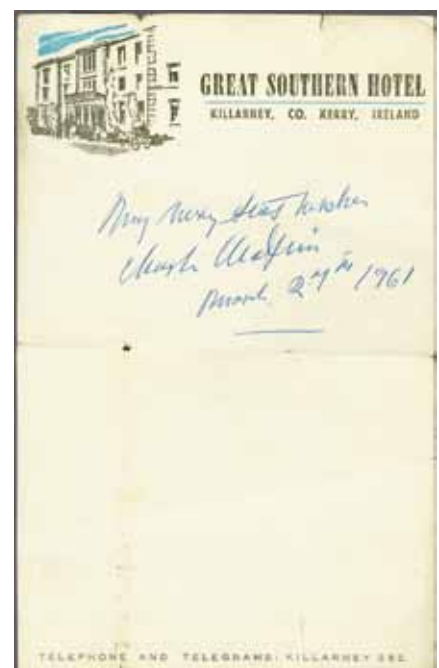 GREAT SOUTHERN HOTEL
KILLARNEY, CO. KERRY, IRELAND
My very best wishes
Charlie Chaplin
March 27th 1961
TELEPHONE AND TELEGRAMS: KILLARNEY